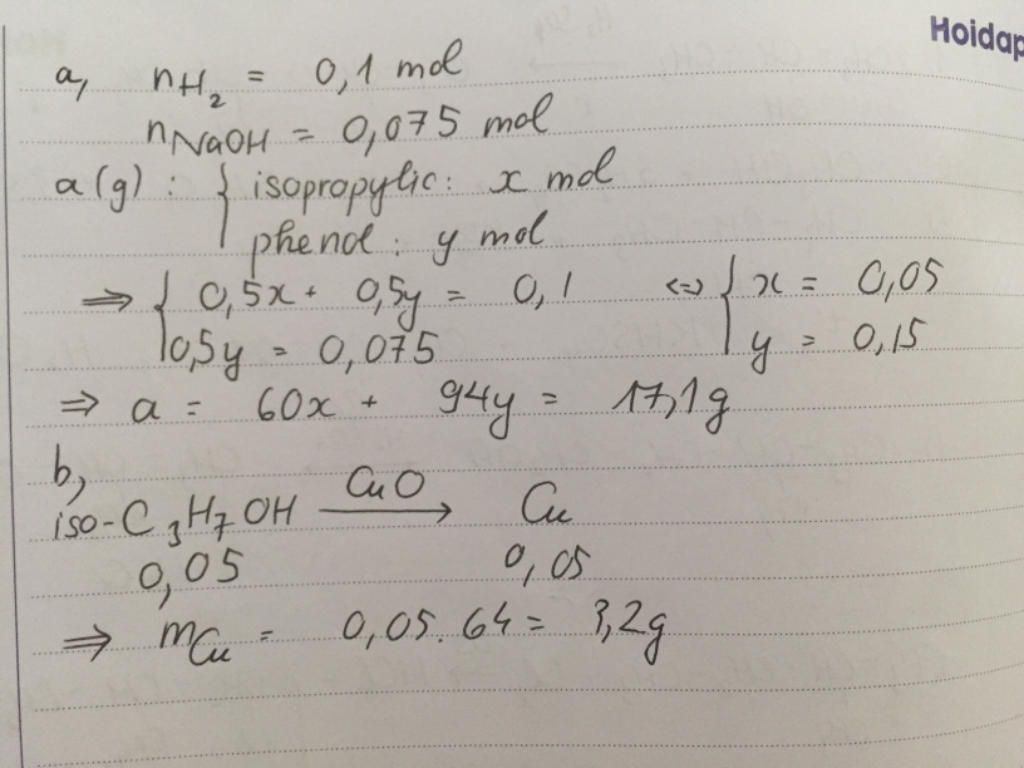 Hoidap
a, nH₂ = 0,1 mol
nNaOH = 0,075 mol
a(g) : { isopropylic: x mol
phenol: y mol
⇒ { 0,5x + 0,5y = 0,1 <=> { x = 0,05
0,5y = 0,075 y = 0,15
⇒ a = 60x + 94y = 17,1g
b,
iso-C₃H₇OH CuO → Cu
0,05 0,05
⇒ mCu = 0,05.64 = 3,2g